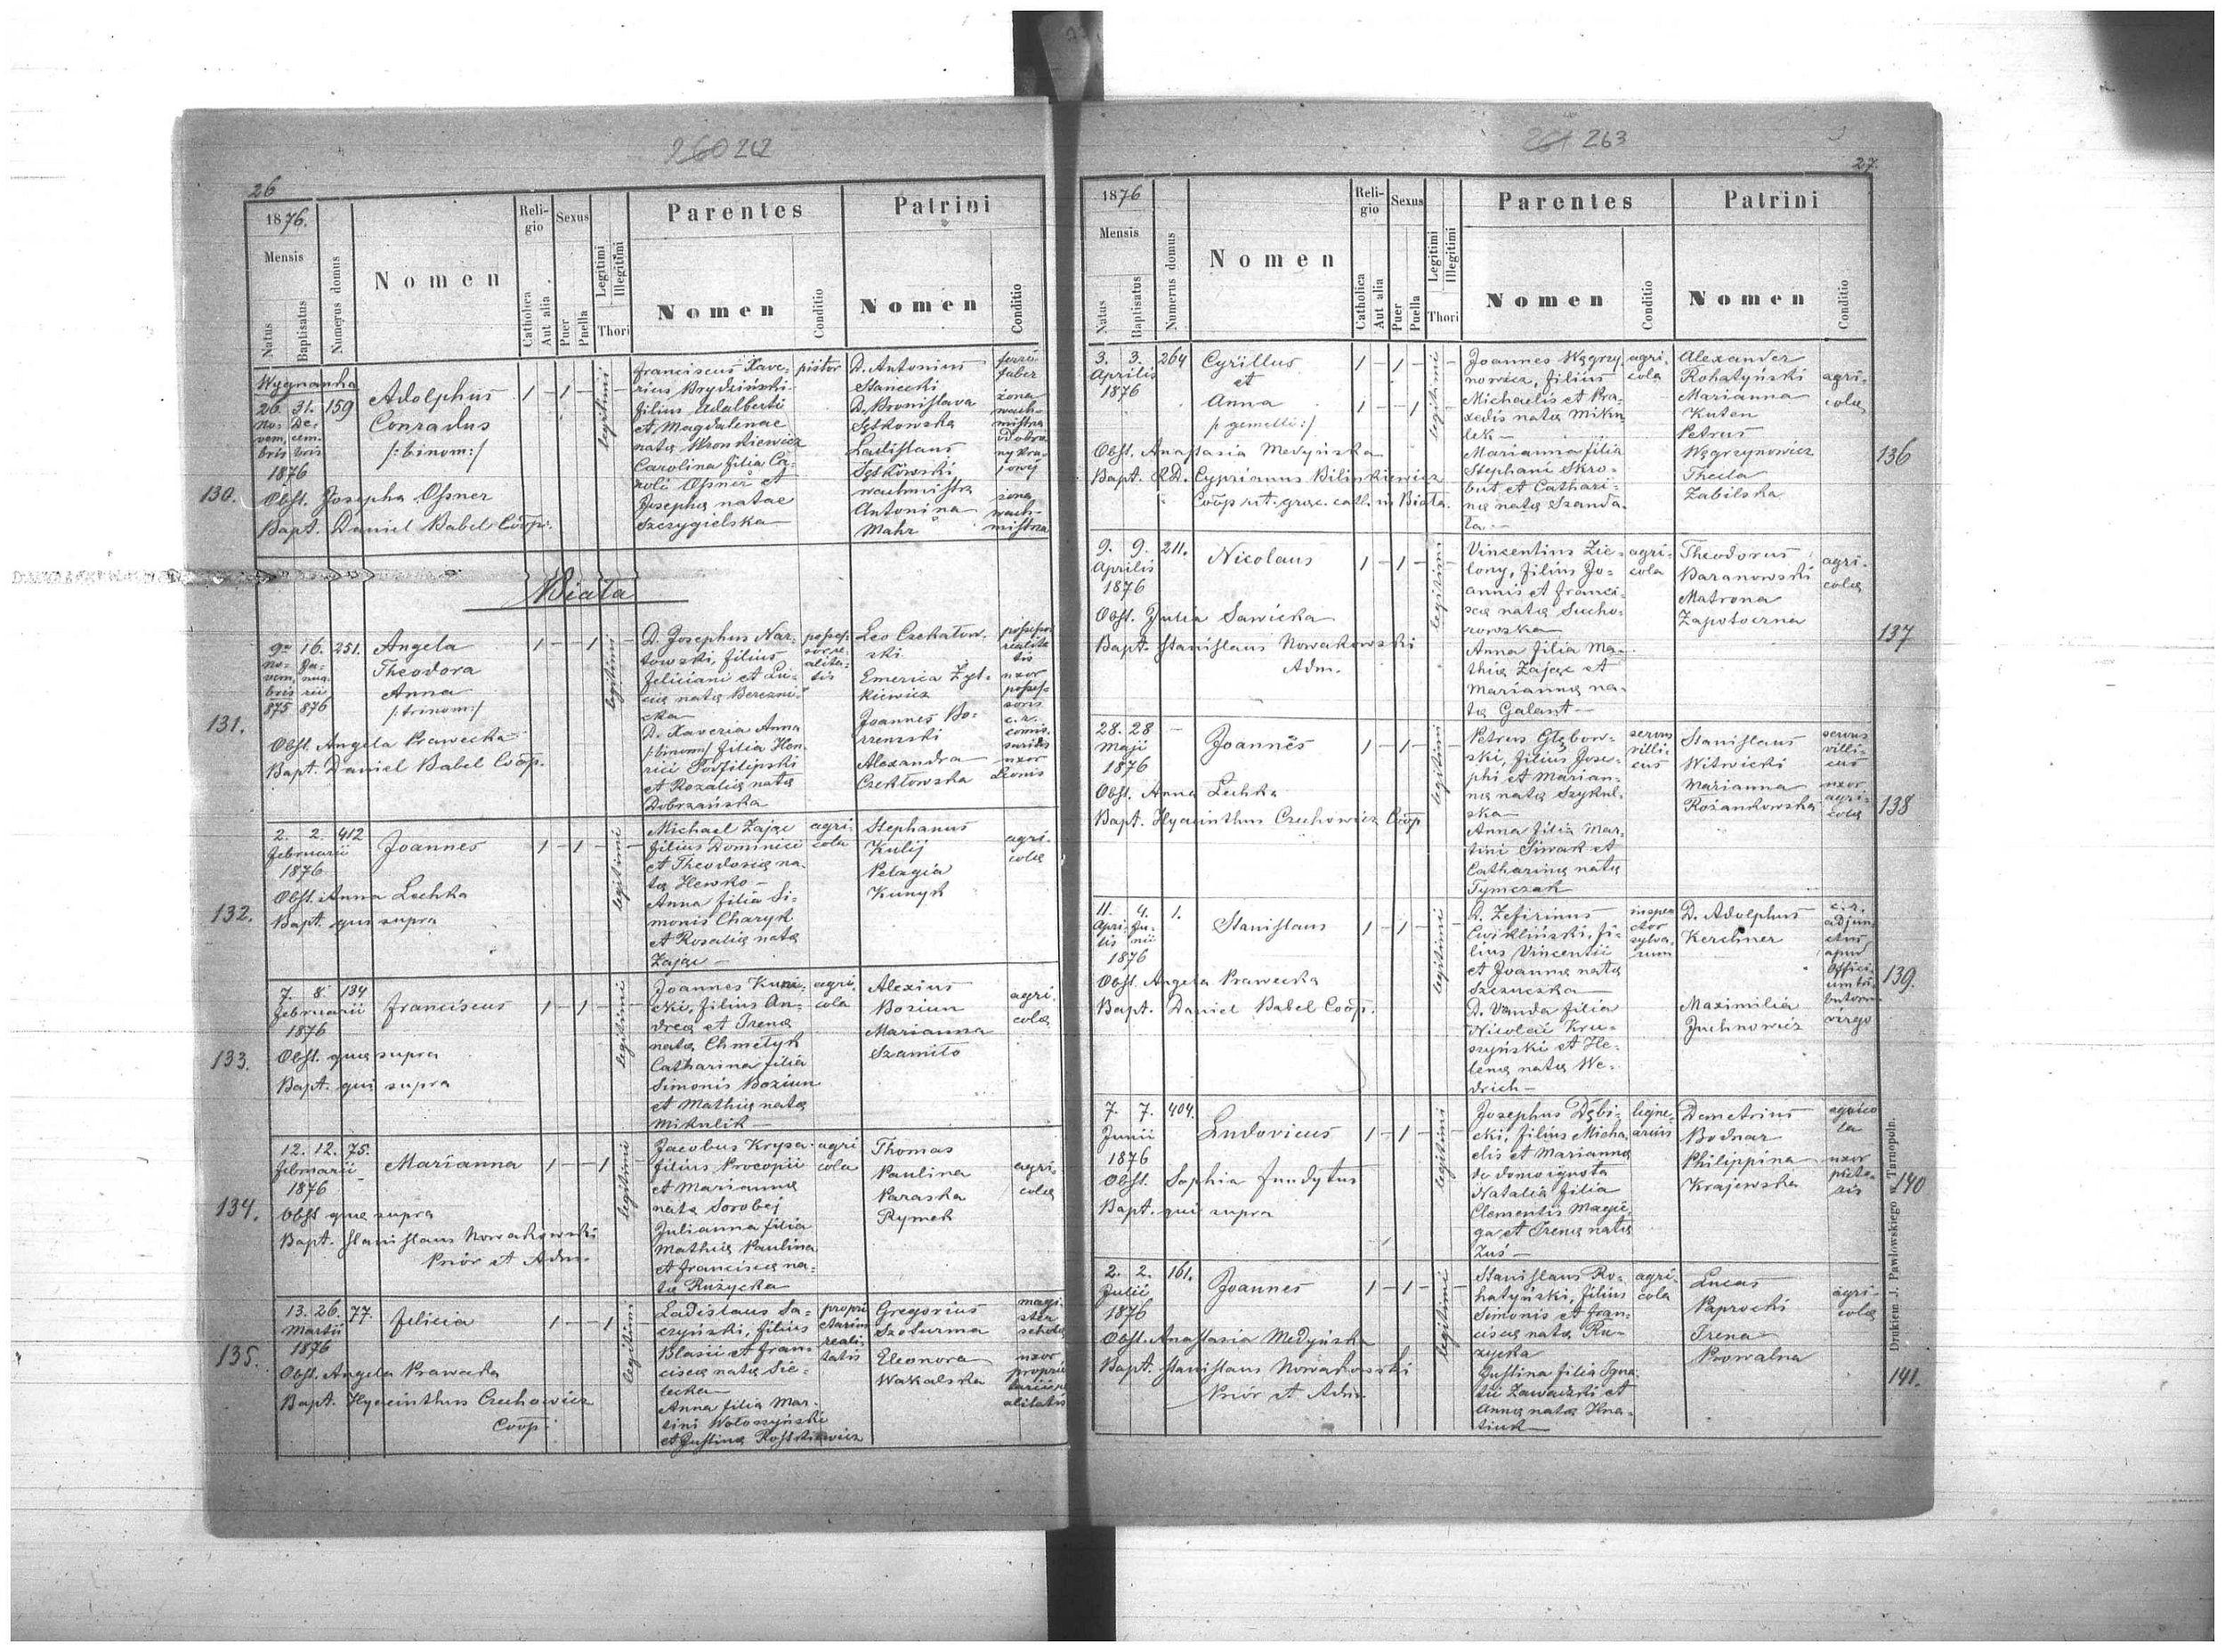 260 242
26
1876.
Mensis
Natus
Baptisatus
Numerus domus
Nomen
Religio
Catholica
Aut alia
Sexus
Puer
Puella
Legitimi
Illegitimi
Thori
Parentes
Nomen
Conditio
Patrini
Nomen
Conditio
130.
Wygnanka
26. 31. 159
No- De-
vem, cem,
bris bris
1876
Adolphus
Conradus
/:binom:/
1 - 1 -
legitimi
Obst. Josepha Ossner
Bapt. Daniel Babel Coop.
Franciscus Xave-
rius Brydziński
filius Adalberti
et Magdalenae
nata Wronkiewicz
Carolina filia Ca-
roli Ossner et
Josepha natae
Szczygielska
pistor
D. Antonius
Stanecki
D. Bronislava
Sętkowska
Ladislaus
Sętkowski
wachmistrz
Antonina
Mahr
ferri
faber
żona
wach-
mistrza
żona
wach-
mistrza
Biała
131.
9na 16. 251.
No- Ja-
vem, nua-
bris rii
875 876
Angela
Theodora
Anna
/:trinom:/
1 - - 1 -
legitimi
Obst. Angela Prawecka
Bapt. Daniel Babel Coop.
D. Josephus Nar-
towski, filius
Feliciani et Lu-
cia nata Berezni-
cka
D. Xaveria Anna
/:binom:/ filia Hen-
rici Podfilipski
et Rozalia nata
Dobrzańska
posses-
sor re-
alita-
tis
Leo Czekatow-
ski
Emerica Zyt-
kiewicz
Joannes Bo-
rzemski
Alexandra
Czekłowska
possessor
realita
tis
uxor
posses-
soris
c. r.
comis-
sarius
uxor
Leonis
132.
2. 2. 412
Februarii
1876
Joannes
1 - 1 - -
legitimi
Obst. Anna Lechka
Bapt. qui supra
Michael Zając
filius Dominici
et Theodosia na-
ta Hewko -
Anna filia Si-
monis Charyk
et Rosalia nata
Zając -
agri-
cola
Stephanus
Kulij
Pelagia
Kunyk
agri-
colæ
133.
7. 8. 134
Februarii
1876
Franciscus
1 - 1 - -
legitimi
Obst. quæ supra
Bapt. qui supra
Joannes Kuni-
cki, filius An-
drea et Irena
nata Chmetyk
Catharina filia
Simonis Boziun
et Mathia nata
Mikulik -
agri-
cola
Alexius
Boziun
Marianna
Szamito
agri-
colæ
134.
12. 12. 75.
Februarii
1876
Marianna
1 - - 1 -
legitimi
Obst quæ supra
Bapt. Stanislaus Nowakowski
Prior et Adm.
Jacobus Krysa
filius Procopii
et Marianna
nata Sorobej
Julianna filia
Mathia Paulina
et Francisca na-
ta Rużycka
agri
cola
Thomas
Paulina
Paraska
Rymek
agri-
colæ
135.
13. 26. 77.
Martii
1876
Felicia
1 - - 1 -
legitimi
Obst. Angela Prawecka
Bapt. Hyacinthus Czechowicz
Coop.
Ladislaus Sa-
czyński, filius
Blasii et Fran-
cisca nata Sie-
lecka
Anna filia Mar-
tini Wołoszyński
et Justina Rostkiewicz
propri
etarius
reali-
tatis
Gregorius
Szoturma
Eleonora
Wakalska
magi-
ster
scholæ
uxor
proprie
tarii re
alitatis
261 263
27.
1876
Mensis
Natus
Baptisatus
Numerus domus
Nomen
Religio
Catholica
Aut alia
Sexus
Puer
Puella
Legitimi
Illegitimi
Thori
Parentes
Nomen
Conditio
Patrini
Nomen
Conditio
3. 3. 264
Aprilis
1876
Cyrillus
et
Anna
/:gemelli:/
1 - 1 - -
1 - - 1 -
legitimi
Obst. Anastasia Medyńska
Bapt. R.D. Cyprianus Bilinkiewicz
Coop rit. græc. cath. in Biała.
Joannes Węgrzy-
nowicz, filius
Michaelis et Pra-
xedis nata Miku
lek -
Marianna filia
Stephani Skro-
but et Cathari-
na nata Szanda-
ła -
agri-
cola
Alexander
Rohatyński
Marianna
Kuten
Petrus
Węgrzynowicz
Thecla
Zabilska
agri-
colæ
136
9. 9. 211.
Aprilis
1876
Nicolaus
1 - 1 - -
legitimi
Obst. Julia Sawicka
Bapt. Stanislaus Nowakowski
Adm.
Vincentius Zie-
lony, filius Jo-
annis et Franci-
sca nata Sucho-
rowska
Anna filia Ma-
thia Zając et
Marianna na-
ta Galant -
agri-
cola
Theodorus
Baranowski
Matrona
Zapotoczna
agri-
colæ
137
28. 28 -
Maji
1876
Joannes
1 - 1 - -
legitimi
Obst. Anna Lechka
Bapt. Hyacinthus Czechowicz Coop
Petrus Głębow-
ski, filius Jose-
phi et Marian-
na nata Szykul-
ska -
Anna filia Mar-
tini Siwak et
Catharina nata
Tymczak
servus
villi-
cus
Stanislaus
Witwicki
Marianna
Rożankowska
servus
villi-
cus
uxor
agri-
colæ
138
11. 4. 1.
Apri- Ju-
lis nii
1876
Stanislaus
1 - 1 - -
legitimi
Obst. Angela Prawecka
Bapt. Daniel Babel Coop.
D. Zefirinus
Cwikliński, fi-
lius Vincentii
et Joanna nata
Szczuczka -
D. Vanda filia
Nicolai Kru-
szyński et He-
lena nata We-
drich -
inspe-
ctor
sylva-
rum
D. Adolphus
Kerchner
Maximilia
Juchnowicz
c. r.
adjun-
ctus
apud
offici-
um tri-
butorum
virgo
139.
7. 7. 404.
Junii
1876
Ludovicus
1 - 1 - -
legitimi
Obst. Sophia Fundytus
Bapt. qui supra
Josephus Dębi-
cki, filius Micha
elis et Marianna
de domo ignota
Natalia filia
Clementis Macie-
ga et Irena nata
Zuś -
ligne-
arius
Demetrius
Bodnar
Philippina
Krajewska
agrico
la
uxor
picto-
ris
140
2. 2. 161.
Julii
1876
Joannes
1 - 1 - -
legitimi
Obst. Anastasia Medyńska
Bapt. Stanislaus Nowakowski
Prior et Adm.
Stanislaus Ro-
hatyński, filius
Simonis et Fran-
cisca nata Ru-
zycka
Justina filia Igna-
tii Zawadzki et
Anna nata Hna-
tiuk
agri-
cola
Lucas
Paprocki
Irena
Prowalna
agri-
colæ
141.
Drukiem J. Pawlowskiego w Tarnopoln.